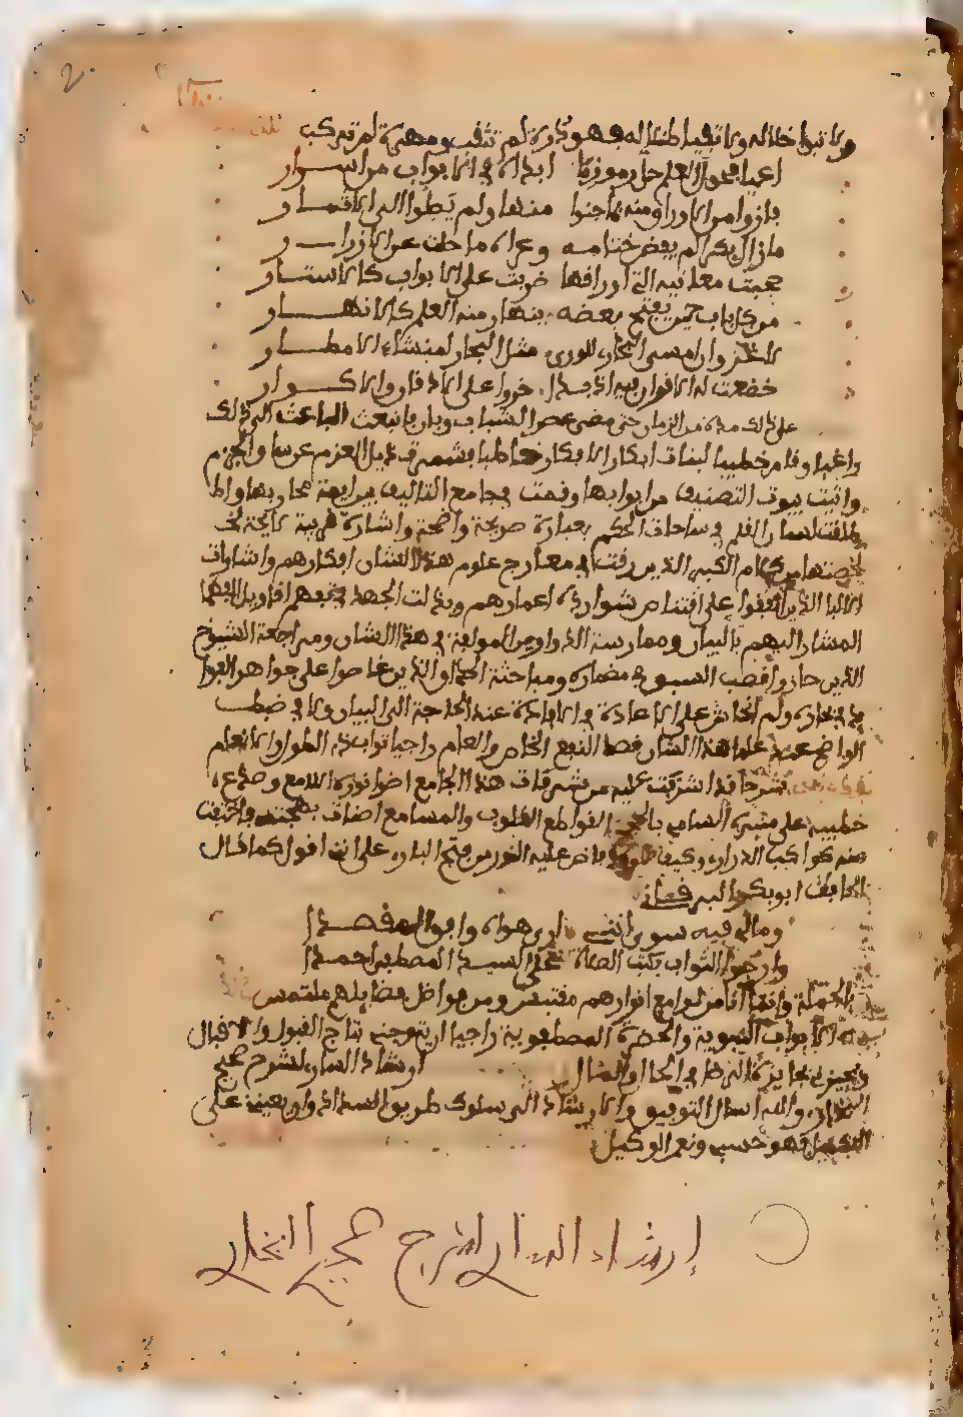 ولا تبوا خلاله ولا تفيا ظلاله فهو درة لم تثقب ومهرة لم تركب
اعيا فحول العلم حل رموز ما ابداه في الابواب من اسرار
فازوا من الاوراق منه بما جنوا منها ولم يصلوا الى الاثمار
ما زال بكرا لم يفض ختامه وعراه ما حلت عن الازرار
حجبت معانيه التي اوراقها ضربت على الابواب كالاستار
من كل باب حين يفتح بعضه ينهار منه العلم كالانهار
لا غرو ان امسى البخاري للورى مثل البحار لمنشا الامطار
خضعت له الاقران فيه اذ بدا خروا على الاذقان والاكوار
على ذلك مدة من الزمان حتى مضى عصر الشباب وبان فانبعث الباعث الى ذلك
راغبا وقام خطيبا لبنات ابكار الافكار خاطبا فشمرت ذيل العزم عن ساق الحزم
واتيت بيوت التصنيف من ابوابها وقمت في جامع التاليف بين ايمته بمحاريبها
واطلقت لسان القلم في ساحات الحكم بعبارة صريحة واضحة واشارة قريبة لائحة
لخصتها من كلام الكبراء الذين رقت في معارج علوم هذا الشان افكارهم واشارات
الالبا الذين انفقوا على اقتناص شوارده اعمارهم وبذلت الجهد في تفهم اقاويل الفهما
المشار اليهم بالبنان وممارسة الدواوين المولفة في هذا الشان ومراجعة الشيوخ
الذين حازوا قصب السبق في مضماره ومباحثة الحذاق الذين غاصوا على جواهر الفرائد
في بحاره ولم اتحاش عن الاعادة في الافادة عند الحاجة الى البيان ولا في ضبط
الواضح عند علماء هذا الشان قصدا لنفع الخاص والعام راجيا ثواب ذي الطول والانعام
شرحا قد اشرقت عليه من شرفات هذا الجامع اضواء نوره اللامع وصدع
خطيبه على منبره السامي بالحجج القواطع القلوب والمسامع اضات بهجته فاختفت
منه كواكب الدراري وكيف لا وقد فاض عليه النور من فتح الباري على اني اقول كما قال
الحافظ ابو بكر البرقاني
وما لي فيه سوى انني اراه هوى وافق المقصدا
وارجو الثواب بكتب الصلاة على السيد المصطفى احمدا
وبالجملة فانما انا من لوامع انوارهم مقتبس ومن فواضل فضايلهم ملتمس
الابواب النبوية والحضرة المصطفوية راجيا ان يتوجني بتاج القبول والاقبال
ويجيزني بجايزة الرضا في الحال والمال ارشاد الساري لشرح صحيح
البخاري والله اسال التوفيق والارشاد الى سلوك طريق السداد وان يعينني على
التكميل فهو حسبي ونعم الوكيل
إرشاد الساري لشرح صحيح البخاري